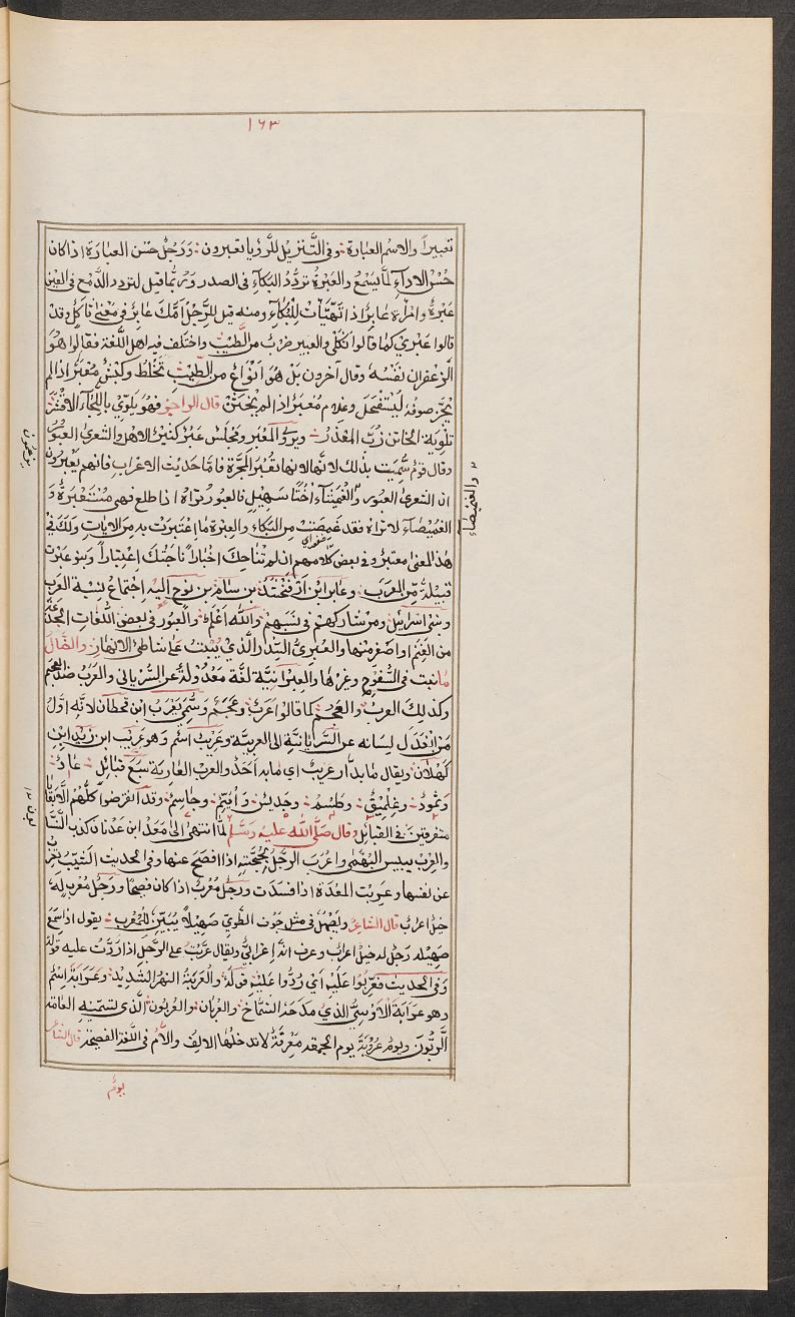 ١٦٣
تعبيراً والاسم العبارة وفى التنزيل للرؤيا تعبرون ورجل حسن العبارة اذا كان
حسن الاداء لما يسمع والعبرة تردد البكاء فى الصدر وربما قيل لتردد الدمع فى العين
عبرة وامراة عابر اذا تهيات للبكاء ومنه قيل للرجل امك عابر فى معنى ثاكل وقد
قالوا عبرى كما قالوا ثكلى والعبير ضرب من الطيب واختلف فيه اهل اللغة فقالوا هو
الزعفران نفسه وقال آخرون بل هو انواع من الطيب تخلط وكبش معبر اذا لم
يجز صوفه ليستفحل وغلام معبر اذا لم يختن قال الراجز فهو يلوى باللحاء الاقشر
تلوية الخاتن زب المعذر ويروى المعبر ومجلس عبر كثير الاهل والشعرى العبور
وقال قوم سميت بذلك لانها تعبر المجرة فاما حديث الاعراب فانهم يعبرون
ان الشعرى العبور والغميضاء اختا سهيل فالعبور تراه اذا طلع فهى مستعبرة و
الغميضاء لا تراه فقد غمصت من البكاء والعبرة ما اعتبرت به من الايات ولك فى
هذا المعنى معتبر وفى بعض كلامهم ان لم تناجك اخباراً ناجتك اعتباراً وبنو عبرة
قبيلة من العرب وعابر ابن ارفخشذ بن سام بن نوح اليه اجتماع نسبة العرب
وبنى اسرائيل ومن شاركهم فى نسبهم والله اعلم والعبور فى بعض اللغات الجذعة
من الغنم او اصغر منها والعبرى السدر الذى ينبت على شاطئ الانهار والضال
ما نبت فى السفوح وغيرها والعبرانية لغة معدولة عن السريانى والعرب ضد العجم
وكذلك العرب والعجم كما قالوا عرب وعجم وسمى يعرب ابن قحطان لانه اول
من انعدل لسانه عن السريانية الى العربية وعريب اسم وهو عريب ابن زيد ابن
كهلان ويقال ما بالدار عريب اى ما بها احد والعرب العاربة سبع قبائل عاد
وثمود وعمليق وطسم وجديس واميم وجاسم وقد انقرضوا كلهم الا بقايا
متفرقين فى القبائل وقال صلى الله عليه وسلم لما انتهى الى معد ابن عدنان كذب النسا
والعرب يبيس البهمى واعرب الرجل بحجته اذا افصح عنها وفى الحديث الثيب تعرب
عن نفسها وعربت المعدة اذا فسدت ورجل معرب اذا كان فصيحا ورجل معرب له
خيل اعراب قال الشاعر ويصهل فى مثل جوف الطوى صهيلا يبين للمعرب يقول اذا سمع
صهيله رجل له خيل اعراب وعرف انه اعرابى ويقال عربت على الرجل اذا رددت عليه قوله
وفى الحديث فعربوا عليه اى ردوا عليه قوله والعربة النهر الشديد وعرابة اسم
وهو عرابة الاوسى الذى مدحه الشماخ والعربان والعربون الذى تسميه العامه
الربون ويوم عروبة يوم الجمعه معرفة لا تدخلها الالف واللام فى اللغة الفصيحة قال الشاعر
يوم
والغميصاء